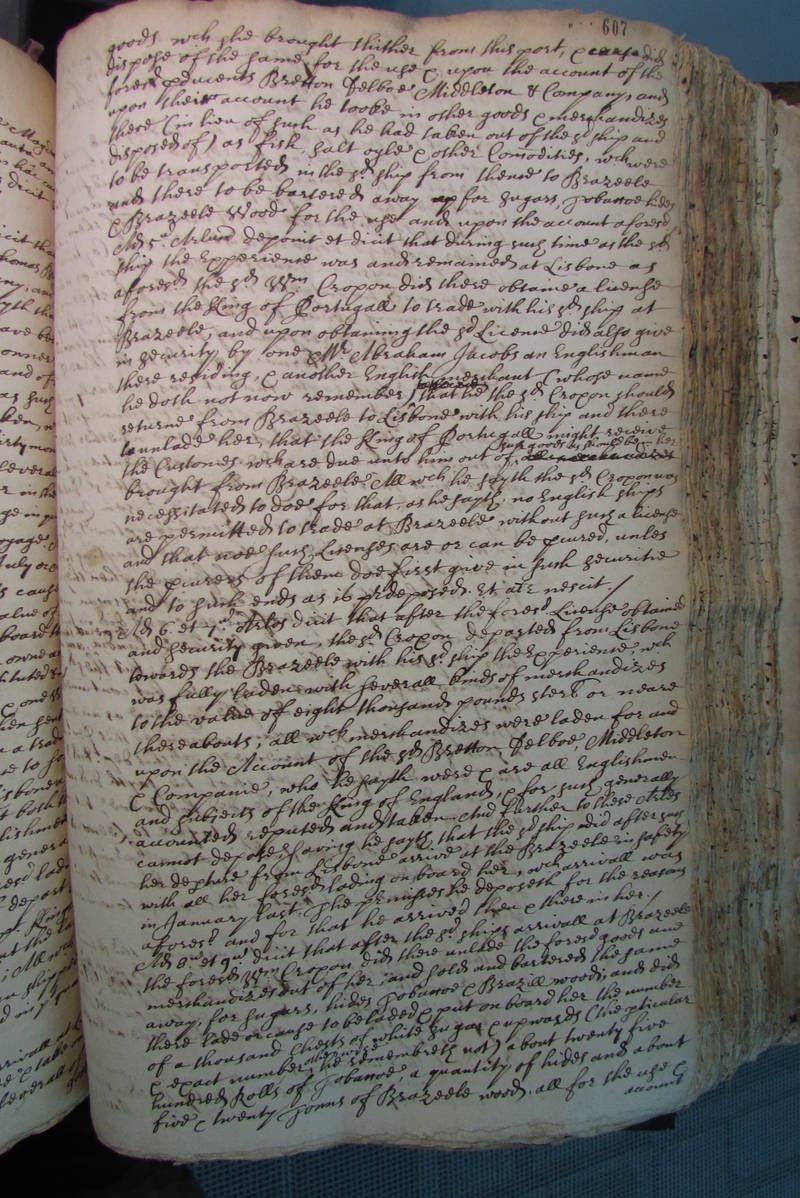 607
goods wch she brought thither from this port, & did
dispose of the same for the use & upon the account of the
foresd pducents Bretton Delboe Middleton & Company, and
upon their account he tooke in other goods & merchandizes
there (in lieu of such as he had taken out of the sd ship and
disposed of) as fish, salt oyle & other Comodities, wch were
to be transported in the sd ship from thence to Brazeele
and there to be bartered away for sugars, Tobaccoe hides
& Brazeele Wood for the use and upon the account aforesd
Ad 5m Arlum deponit et dicit that during such time as the sd
ship the Experience was and remained at Lisbone as
aforesd the sd Wm Croxon did there obtaine a license
from the King of Portugall to trade with his sd ship at
Brazeele, and upon obtaining the sd License did also give
in security by one Mr Abraham Jacobs an Englishman
there residing, & another English merchant (whose name
he doth not now remember) that he the sd Croxon should
returne from Brazeele to Lisbone with his ship and there
to unlade her, that the King of Portugall might receive
the Customes wch are due unto him out of such goods as should bee in her
brought from Brazeele All wch he sayth the sd Croxon was
necessitated to doe for that, as he sayth, no English ships
are permitted to trade at Brazeele without such a license
and that noe such Licenses are or can be pcured, unles
the pcurers of them doe first give in such securitie
and to such ends as is predeposed. Et alr nescit /
Ad 6. et 7m Arlos dicit that after the foresd License obtained
and security given, the sd Croxon departed from Lisbone
towards the Brazeele with his sd ship the Experience, wch
was fully laden with severall kinds of merchandizes
to the value of eight thousand pounds sterl or neare
thereabouts; all wch merchandizes were laden for and
upon the Account of the sd Bretton Delboe, Middleton
& Companie, who he sayth were & are all Englishmen
and subjects of the King of England, & for such generally
accounted reputed and taken And further to these Arles
cannot depose, saving he sayth that the sd ship did after such
her depture from Lisbone arrive at the Brazeele in safety
with all her foresd lading on board her, wch arrivall was
in January last. The premisses he deposeth for the reasons
aforesd and for that he arrived then & there in her. /
Ad 8m et 9m dicit that after the sd ships arrivall at Brazeele
the foresd Wm Croxon did there unlade the foresd goods and
merchandizes out of her, and sold and bartered the same
away, for sugars, hides Tobaccoe & Brazill woods, and did
there lade or cause to be laded & put on board her the number
of a thousand Chests of white sugar & upwards (the pticular
& exact number otherwise he remembreth not) about twenty five
hundred Rolls of Tobaccoe a quantity of hides and about
five & twenty Tonns of Brazeele wood, all for the use &
account